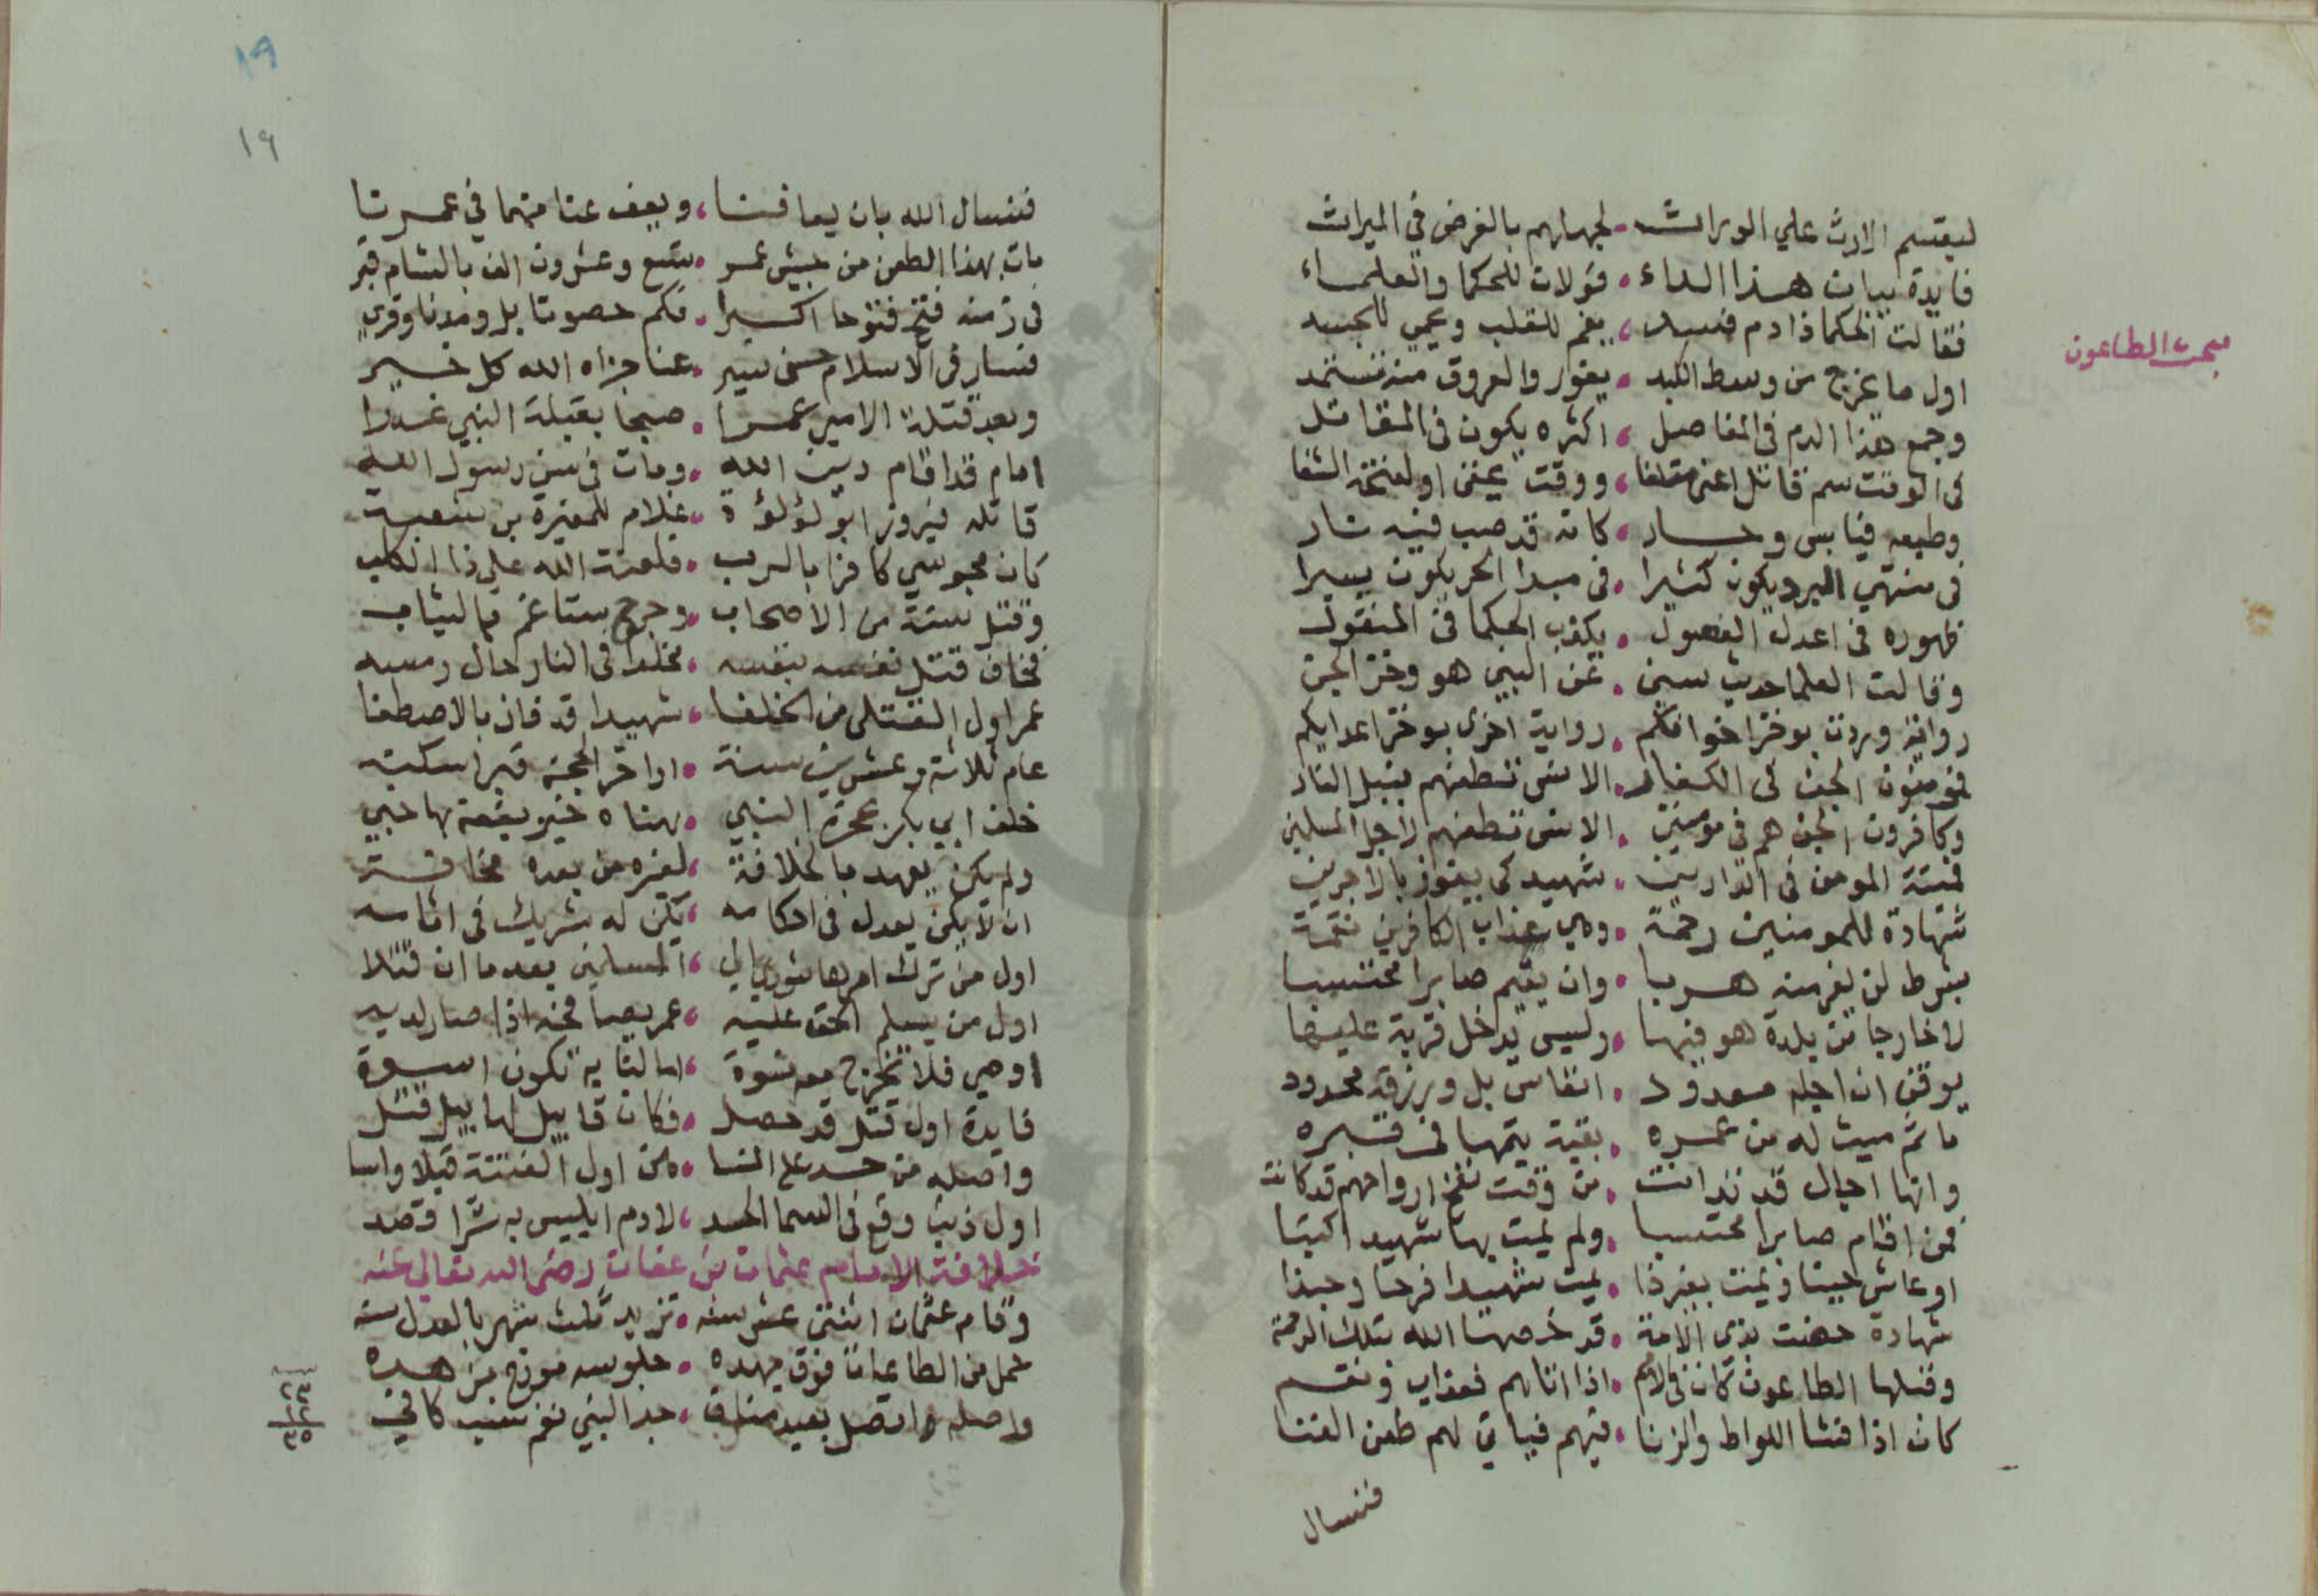 ليقتسم الارث علي الوراث . لجهلهم بالفرض في الميراث
فايدة بيان هذا الداء . قولان للحكما والعلماء
فقالت الحكما ذا دم فسد ، يغم للقلب ويحمي للجسد
اول ما يخرج من وسط الكبد . يفور والعروق منه تستمد
وجمع هذا الدم في المفاصل ، اكثره يكون في المقاتل
في الوقت سم قاتل اعني متلفا ، ووقت يخفي او لفتحة الشفا
وطبعه فيابس وحار . كانه قد صب فيه نار
في منتهي البرد يكون كثيرا . في مبدا الحر يكون يسيرا
ظهوره في اعدل الفصول . يكذب الحكما في المنقول
وقالت العلما حديث سني . عن النبي هو وخز الجن
رواية وردت بوخز اخوانكم . رواية اخري بوخز اعدايكم
فمومنون الجن في الكفار . الانس تطعنهم بنبل النار
وكافرون الجن هم في مومنين . الانس تطعنهم لاجل المسلمين
فميتة المومن في الدارين . شهيد كي يفوز بالاجرين
شهادة للمومنين رحمة . وهي عذاب الكافرين نقمة
بشرط لن يفر منه هربا . وان يقيم صابرا محتسبا
لا خارجا من بلدة هو فيها . وليس يدخل قرية عليها
يوقن ان اجله معدود . انفاس بل ورزقه محدود
ما ثم ميت له من عمره . بقية يتمها في قبره
وانها اجال قد تدانت . من وقت نفخ ارواحهم قد كانت
فمن اقام صابرا محتسبا . ولم يمت بها شهيد اكتبا
او عاش حينا ويمت بغير ذا . يمت شهيدا فرحا وحبذا
شهادة خصت بذي الامة . قد خصها الله بتلك الرحمة
وقبلها الطاعون كان في الامم . اذا اتاهم فعذاب ونقم
كان اذا فشا اللواط والزنا . فيهم فياتي لهم طعن الفنا
فنسال
مبحث الطاعون
١٩
١٩
فنسال الله بان يعافينا ، ويعف عنا منهما في عمرنا
مات بهذا الطعن من جيش عمر . تسع وعشرون الف بالشام قبر
في زمنه فتح فتوحا اكبرا . فكم حصونا بل ومدنا وقري
فسار في الاسلام حسن سير . عنا جزاه الله كل خير
وبعد قتلة الامير عمرا . صبحا بقبلة النبي غدرا
امام قد اقام دين الله . ومات في سن رسول الله
قاتله فيروز ابو لؤلؤة . غلام للمغيرة بن شعبة
كان مجوسي كافرا بالرب . فلعنة الله علي ذا الكلب
وقتل ستة من الاصحاب . وجرح ستا غم بالثياب
فخاف قتل نفسه بنفسه . مخلدا في النار حال رمسه
عمر اول القتلي من الخلفا . شهيدا قد فاز بالاصطفا
عام ثلاثة وعشرين سنة . اواخر الحجة قبرا سكنه
خلف ابي بكر بحجرة النبي . بهناه خير بقعة بها حبي
ولم يكن يعهد بالخلافة . لغيره من بعده مخافة
ان لا يكن يعدل في احكامه ، يكن له شريك في اثامه
اول من ترك امرها شوري الي ، المسلمين بعدما ان قتلا
اول من يسلم الحق عليه ، عمر يصافحنه اذا صار لديه
اوصي فلا تخرج معه نسوة ، امالنا به تكون اسوة
فايدة اول قتل قد حصل . فكان قابيل لهابيل قتل
واصله من حسد علي النسا . من اول الفتنة قبلا واسا
اول ذنب وقع في السما الحسد ، لادم ابليس به شرا قصد
خلافة الامام عثمان بن عفان رضي الله تعالي عنه
وقام عثمان اثنتي عشر سنه . تزيد ثلث شهر بالعدل سنه
تحمل من الطاعات فوق جهده . جلوسه مورخ بزهده
واصله اتصل بعبد مناف . جد النبي نعم نسب كافي